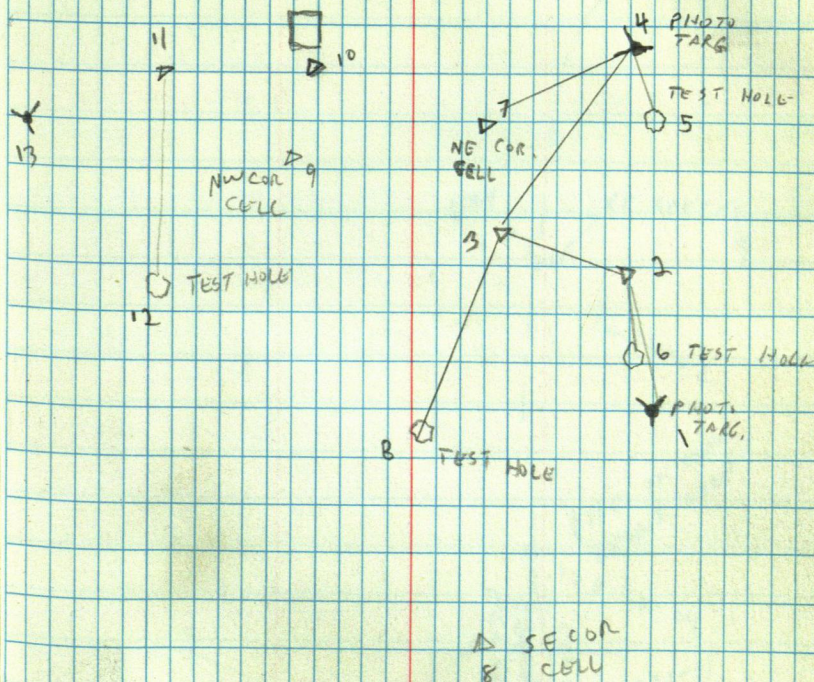 11
10
4 PHOTO
TARG
7
TEST HOLE
5
13
NE COR.
CELL
9
NW COR
CELL
3
2
TEST HOLE
12
6 TEST HOLE
PHOTO
TARG.
1
8
TEST HOLE
SE COR
CELL
8